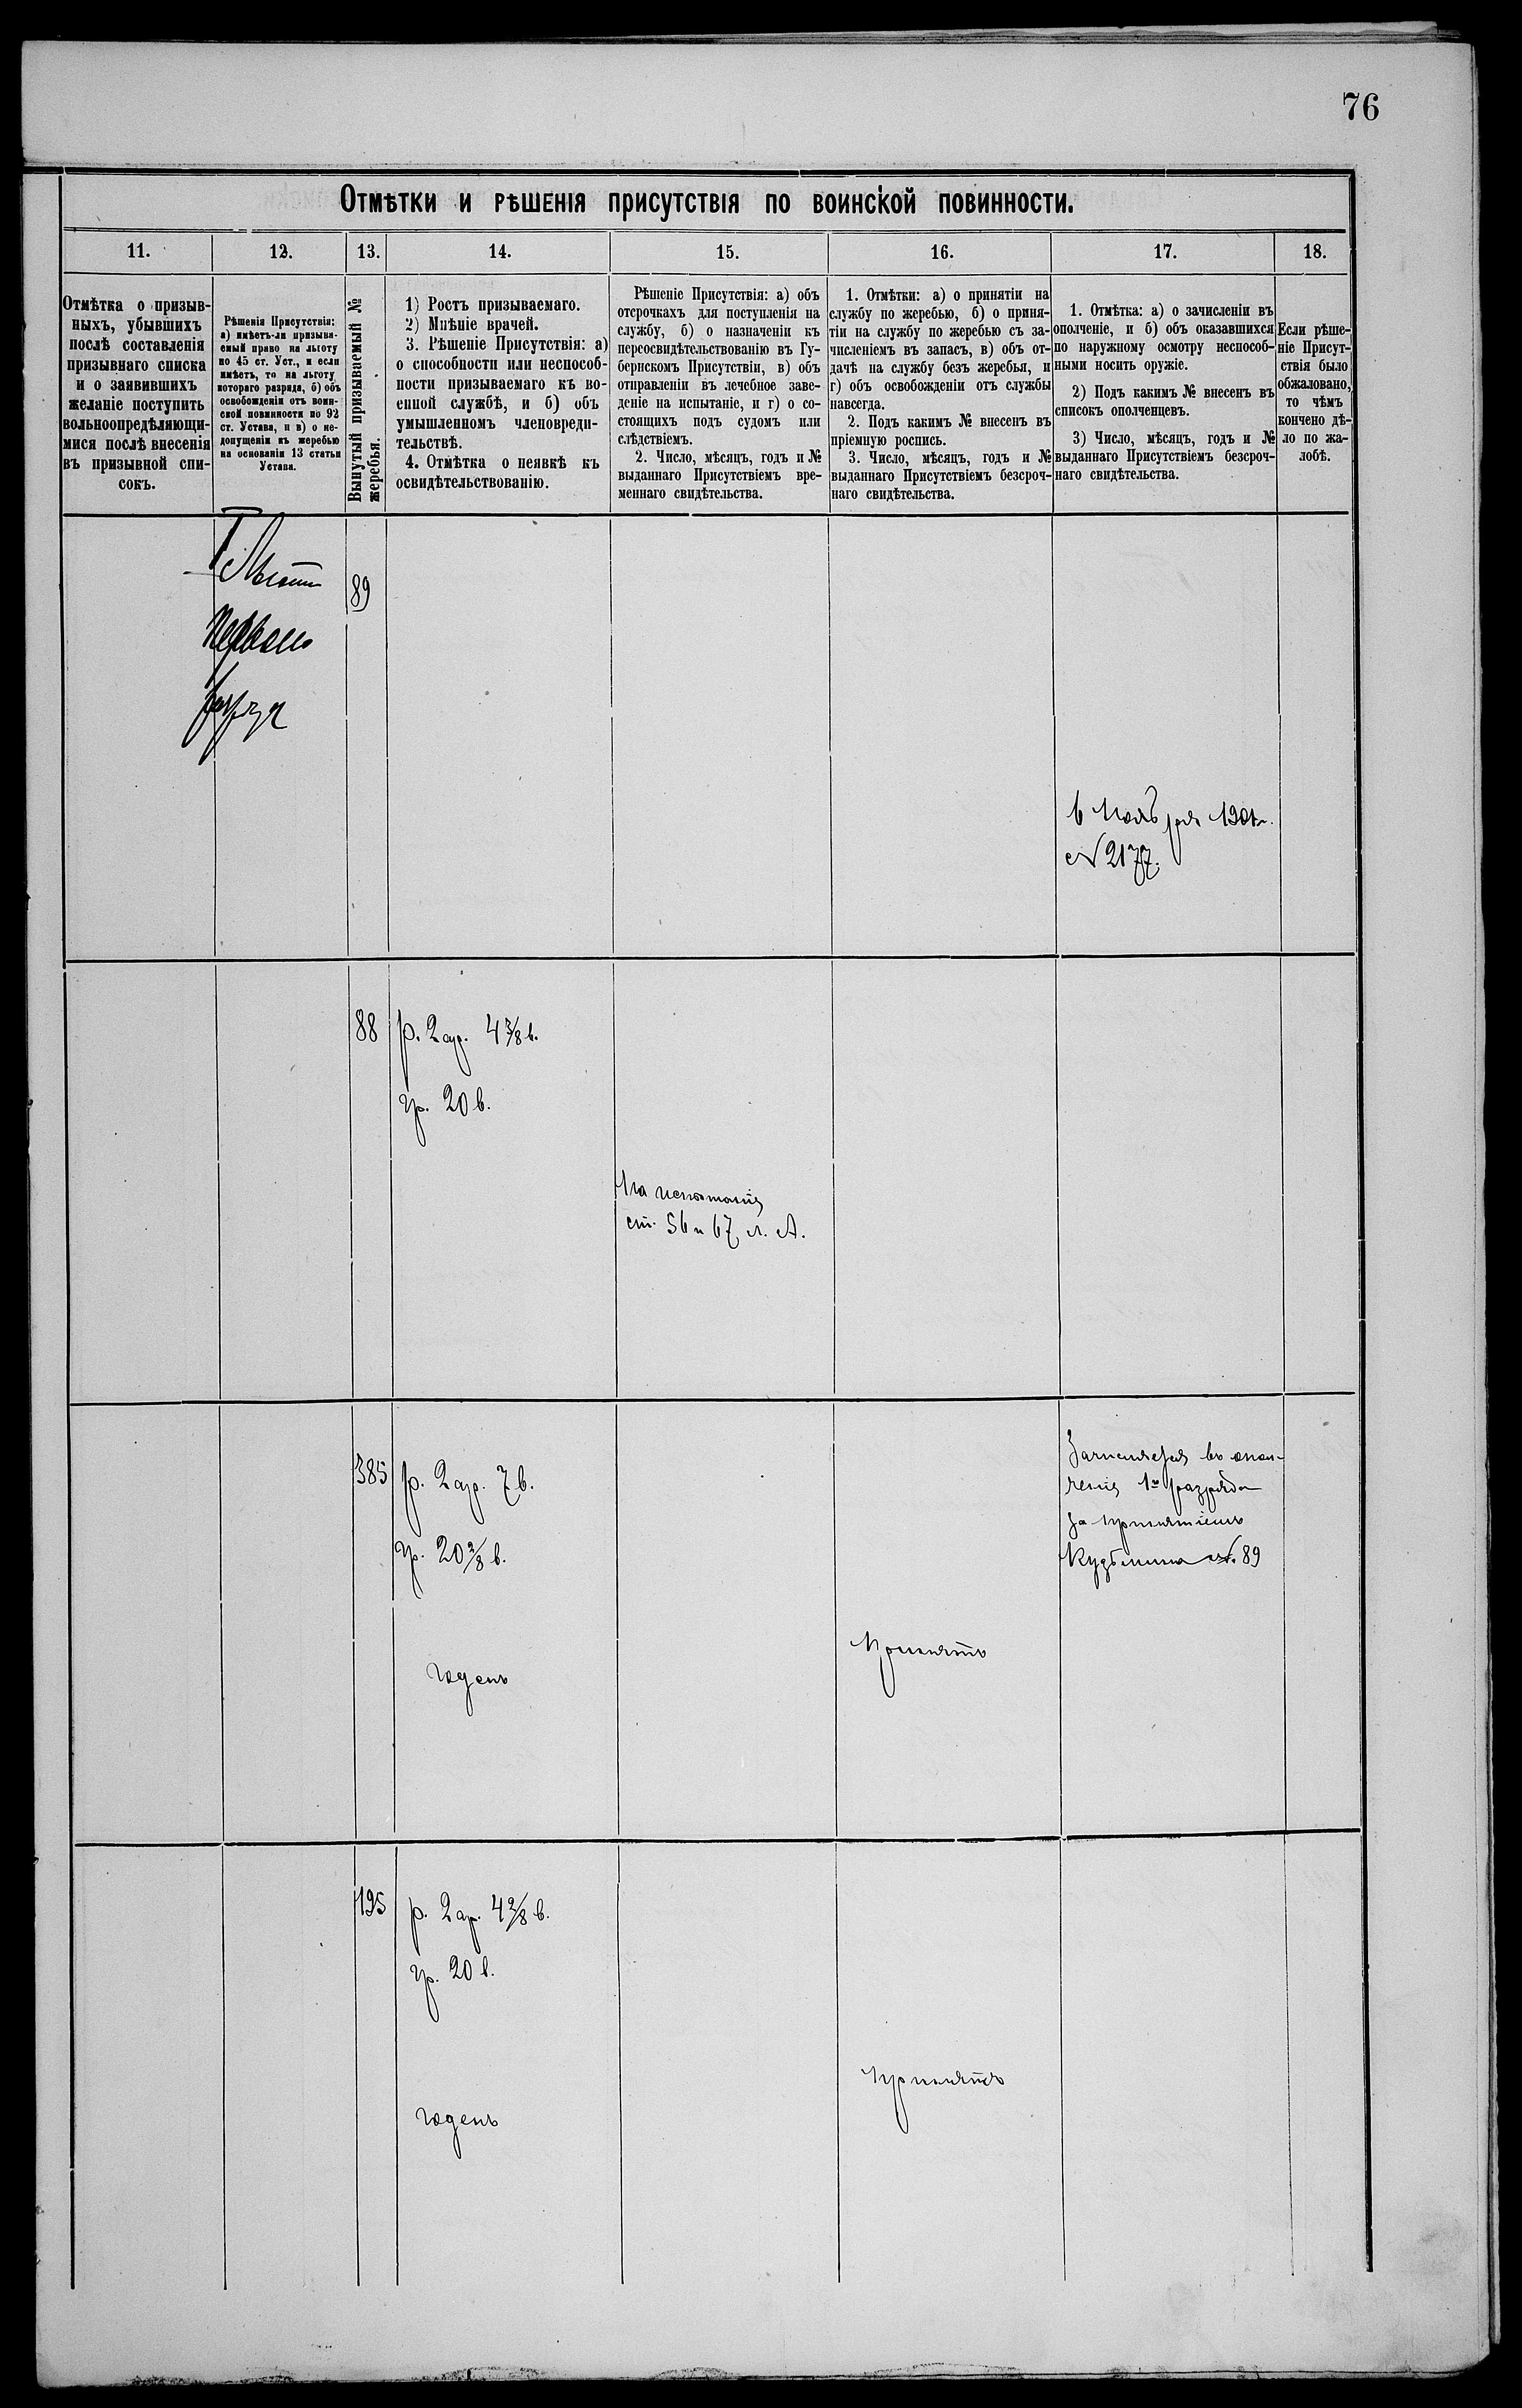 76
Отмѣтки и рѣшенія присутствія по воинской повинности.
11.
12.
13.
14.
15.
16.
17.
18.
Отмѣтка о призыв-
ныхъ, убывшихъ
послѣ составленія
призывнаго списка
и о заявившихъ
желаніе поступить
вольноопредѣляющи-
мися послѣ внесенія
въ призывной спи-
сокъ.
Рѣшенія Присутствія:
а) имѣетъ-ли призыва-
емый право на льготу
по 45 ст. Уст., и если
имѣетъ, то на льготу
котораго разряда, б) объ
освобожденіи отъ воин-
ской повинности по 92
ст. Устава, и в) о не-
допущеніи къ жеребью
на основаніи 13 статьи
Устава.
Вынутый призываемый №
жеребья.
1) Ростъ призываемаго.
2) Мнѣніе врачей.
3. Рѣшеніе Присутствія: а)
о способности или неспособ-
ности призываемаго къ во-
енной службѣ, и б) объ
умышленномъ членовреди-
тельствѣ.
4. Отмѣтка о неявкѣ къ
освидѣтельствованію.
Рѣшеніе Присутствія: а) объ
отсрочкахъ для поступленія на
службу, б) о назначеніи къ
переосвидѣтельствованію въ Гу-
бернскомъ Присутствіи, в) объ
отправленіи въ лечебное заве-
деніе на испытаніе, и г) о со-
стоящихъ подъ судомъ или
слѣдствіемъ.
2. Число, мѣсяцъ, годъ и №
выданнаго Присутствіемъ вре-
меннаго свидѣтельства.
1. Отмѣтки: а) о принятіи на
службу по жеребью, б) о приня-
тіи на службу по жеребью съ за-
численіемъ въ запасъ, в) объ от-
дачѣ на службу безъ жеребья, и
г) объ освобожденіи отъ службы
навсегда.
2. Подъ какимъ № внесенъ въ
пріемную роспись.
3. Число, мѣсяцъ, годъ и №
выданнаго Присутствіемъ безсроч-
наго свидѣтельства.
1. Отмѣтка: а) о зачисленіи въ
ополченіе, и б) объ оказавшихся
по наружному осмотру неспособ-
ными носить оружіе.
2) Подъ какимъ № внесенъ въ
списокъ ополченцевъ.
3) Число, мѣсяцъ, годъ и №
выданнаго Присутствіемъ безсроч-
наго свидѣтельства.
Если рѣше-
ніе Присут-
ствія было
обжаловано,
то чѣмъ
кончено дѣ-
ло по жа-
лобѣ.
I Льготы
Перваго
разряда
89
6 Ноября 1901 г.
№ 2177.
88
р. 2 ар. 4 3/8 в.
гр. 20 в.
На испытаніе
ст. 56 и 67 л. А.
385
р. 2 ар. 7 в.
гр. 20 2/8 в.
годенъ
Принятъ
Зачисляется въ опол-
ченіе 1го разряда
за принятіемъ
Кузьмина № 89
195
р. 2 ар. 4 2/8 в.
гр. 20 в.
годенъ
принятъ